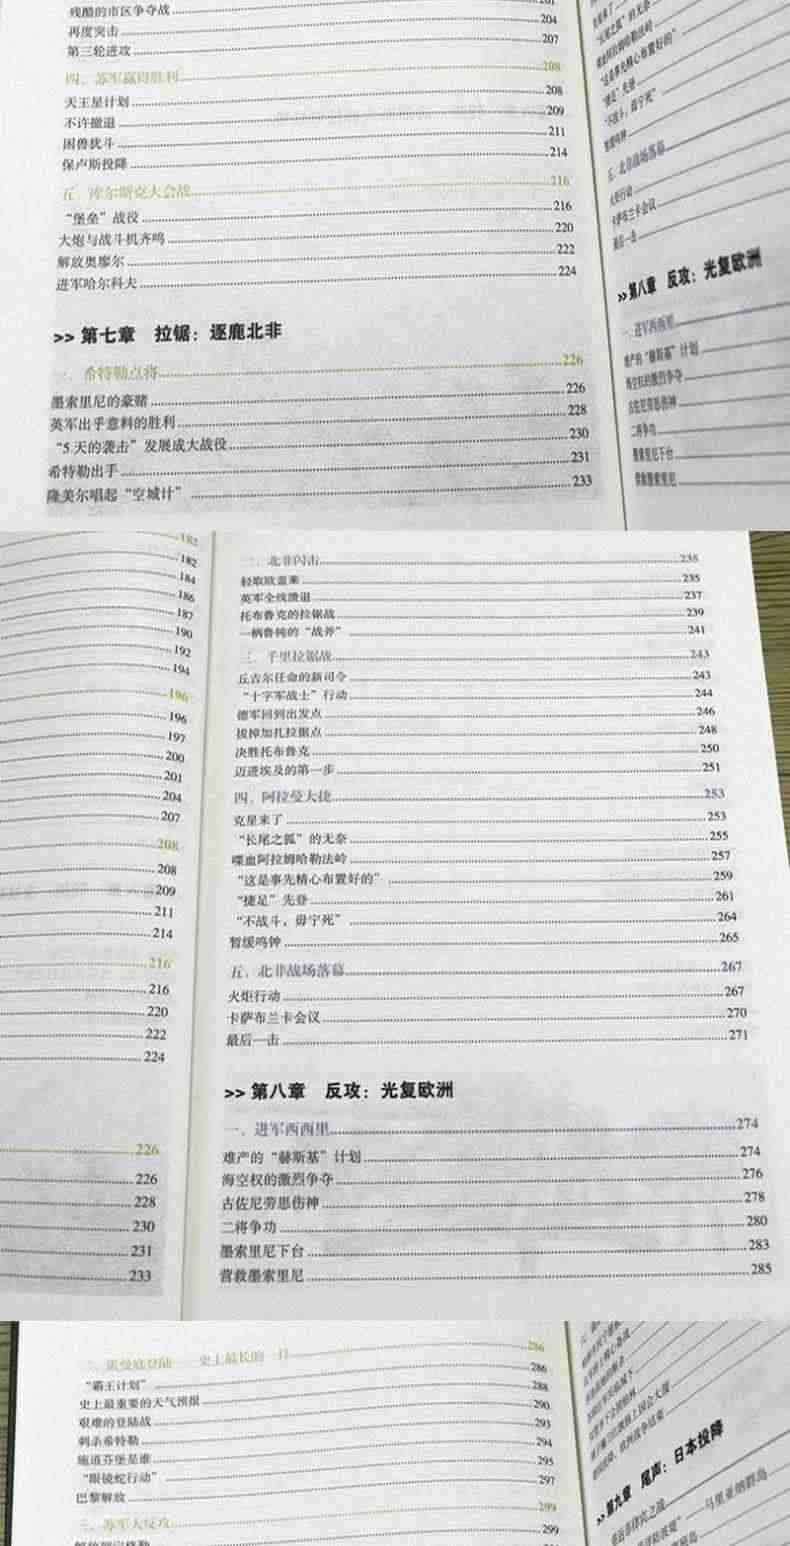 残酷的市区争夺战 201
再度突击 204
第三轮进攻 207
四、苏军赢得胜利 208
天王星计划 208
不许撤退 209
困兽犹斗 211
保卢斯投降 214
五、库尔斯克大会战 216
“堡垒”战役 216
大炮与战斗机齐鸣 220
解放奥廖尔 222
进军哈尔科夫 224
>> 第七章 拉锯：逐鹿北非
一、希特勒点将 226
墨索里尼的豪赌 226
英军出乎意料的胜利 228
“5天的袭击”发展成大战役 230
希特勒出手 231
隆美尔唱起“空城计” 233
“长尾之狐”的无奈
喋血阿拉姆哈勒法岭
“这是事先精心布置好的”
“捷足”先登
“不战斗，毋宁死”
暂缓鸣钟
五、北非战场落幕
火炬行动
卡萨布兰卡会议
最后一击
>> 第八章 反攻：光复欧洲
一、进军西西里
难产的“赫斯基”计划
海空权的激烈争夺
古佐尼劳思伤神
二将争功
墨索里尼下台
营救墨索里尼
182
182
184
186
187
190
192
194
196
196
197
200
201
204
207
208
208
209
211
214
216
216
220
222
224
226
226
228
230
231
233
二、北非闪击 235
轻取欧盖莱 235
英军全线溃退 237
托布鲁克的拉锯战 239
一柄鲁钝的“战斧” 241
三、千里拉锯战 243
丘吉尔任命的新司令 243
“十字军战士”行动 244
德军回到出发点 246
拔掉加扎拉据点 248
决胜托布鲁克 250
迈进埃及的第一步 251
四、阿拉曼大捷 253
克星来了 253
“长尾之狐”的无奈 255
喋血阿拉姆哈勒法岭 257
“这是事先精心布置好的” 259
“捷足”先登 261
“不战斗，毋宁死” 264
暂缓鸣钟 265
五、北非战场落幕 267
火炬行动 267
卡萨布兰卡会议 270
最后一击 271
>> 第八章 反攻：光复欧洲
一、进军西西里 274
难产的“赫斯基”计划 274
海空权的激烈争夺 276
古佐尼劳思伤神 278
二将争功 280
墨索里尼下台 283
营救墨索里尼 285
二、诺曼底登陆——史上最长的一日 286
“霸王计划” 286
史上最重要的天气预报 288
艰难的登陆战 290
刺杀希特勒 293
施道芬堡是谁 294
“眼镜蛇行动” 295
巴黎解放 297
三、苏军大反攻 299
299
>> 第九章 尾声：日本投降
马里亚纳群岛